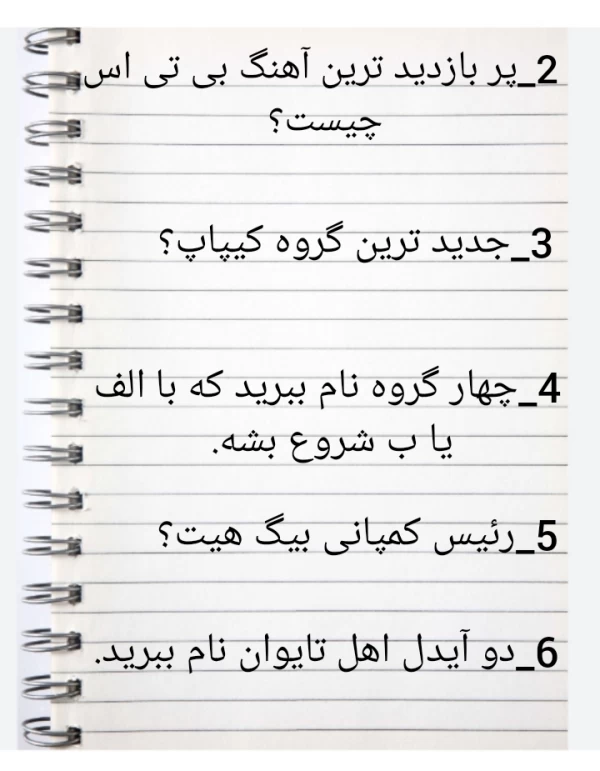 2_پر بازدید ترین آهنگ بی تی اس
چیست؟
3_جدید ترین گروه کیپاپ؟
4_چهار گروه نام ببرید که با الف
یا ب شروع بشه.
5_رئیس کمپانی بیگ هیت؟
6_دو آیدل اهل تایوان نام ببرید.